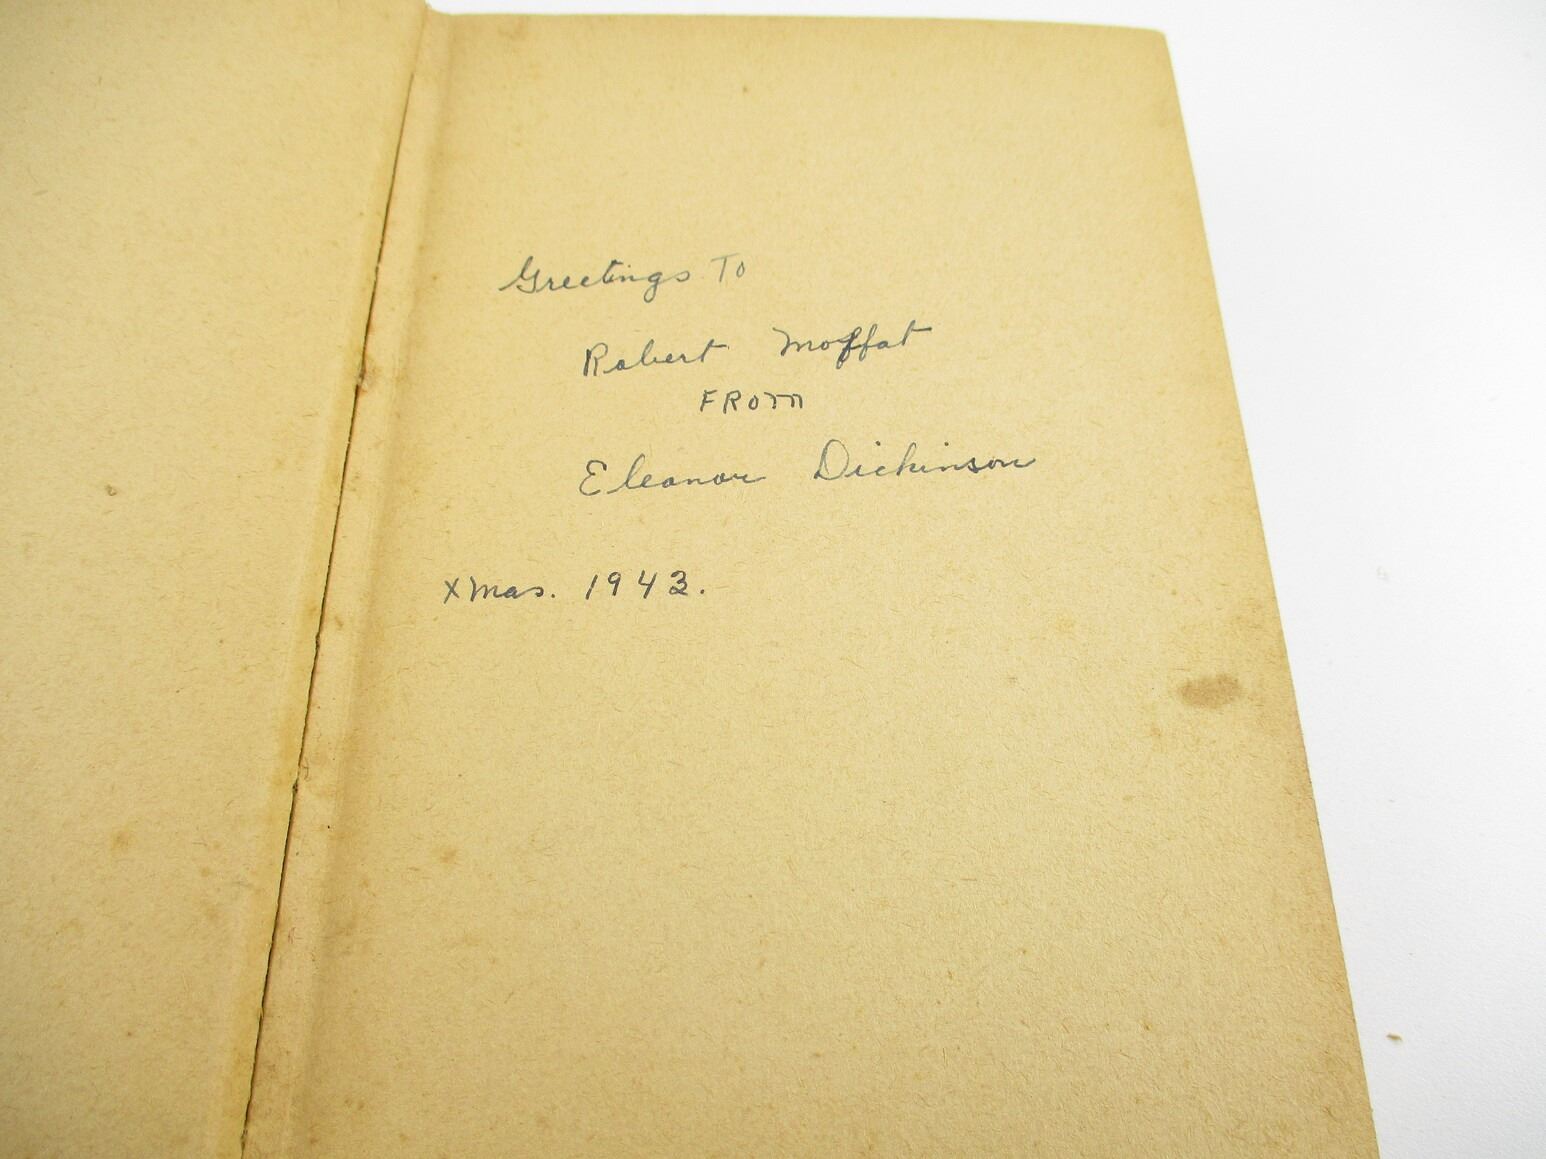 Greetings To
Robert Moffat
FROM
Eleanor Dickinson
XMas. 1943.